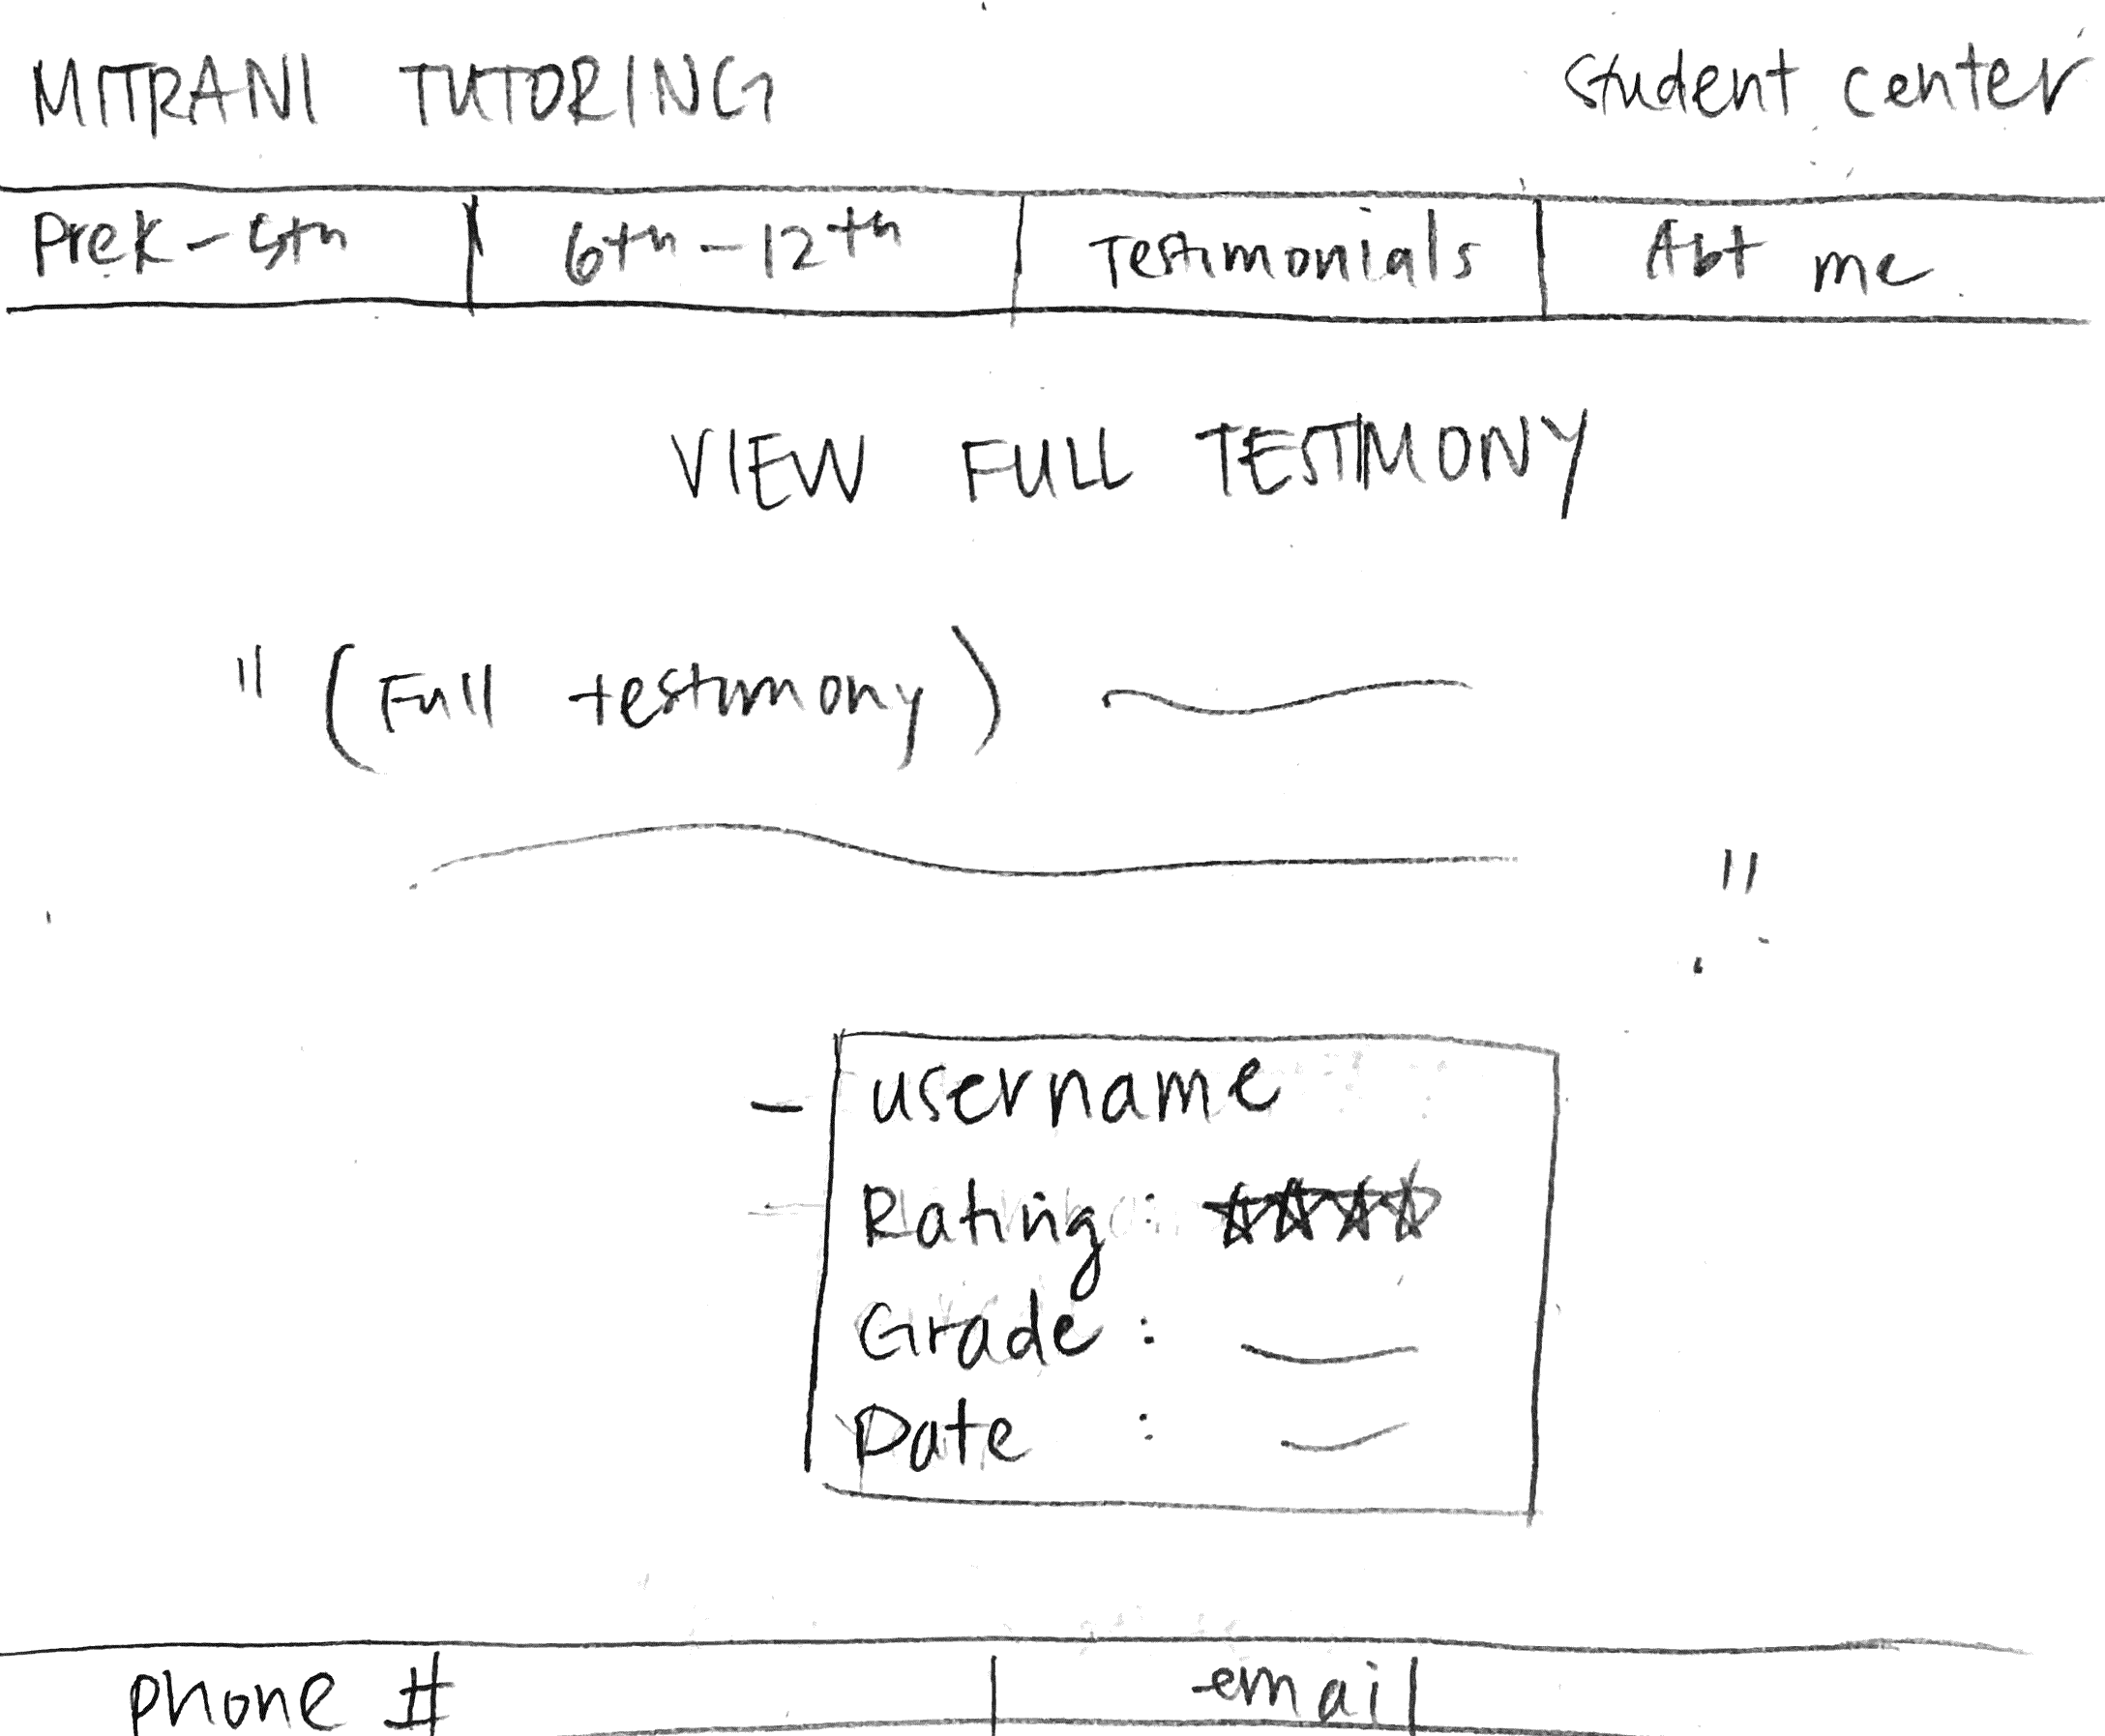 MITRANI TUTORING student center
Prek - 5th 6th - 12th Testimonials Abt me
VIEW FULL TESTIMONY
" (Full testimony)
"
- username
Rating : ☆☆☆☆
Grade :
Date :
phone # email